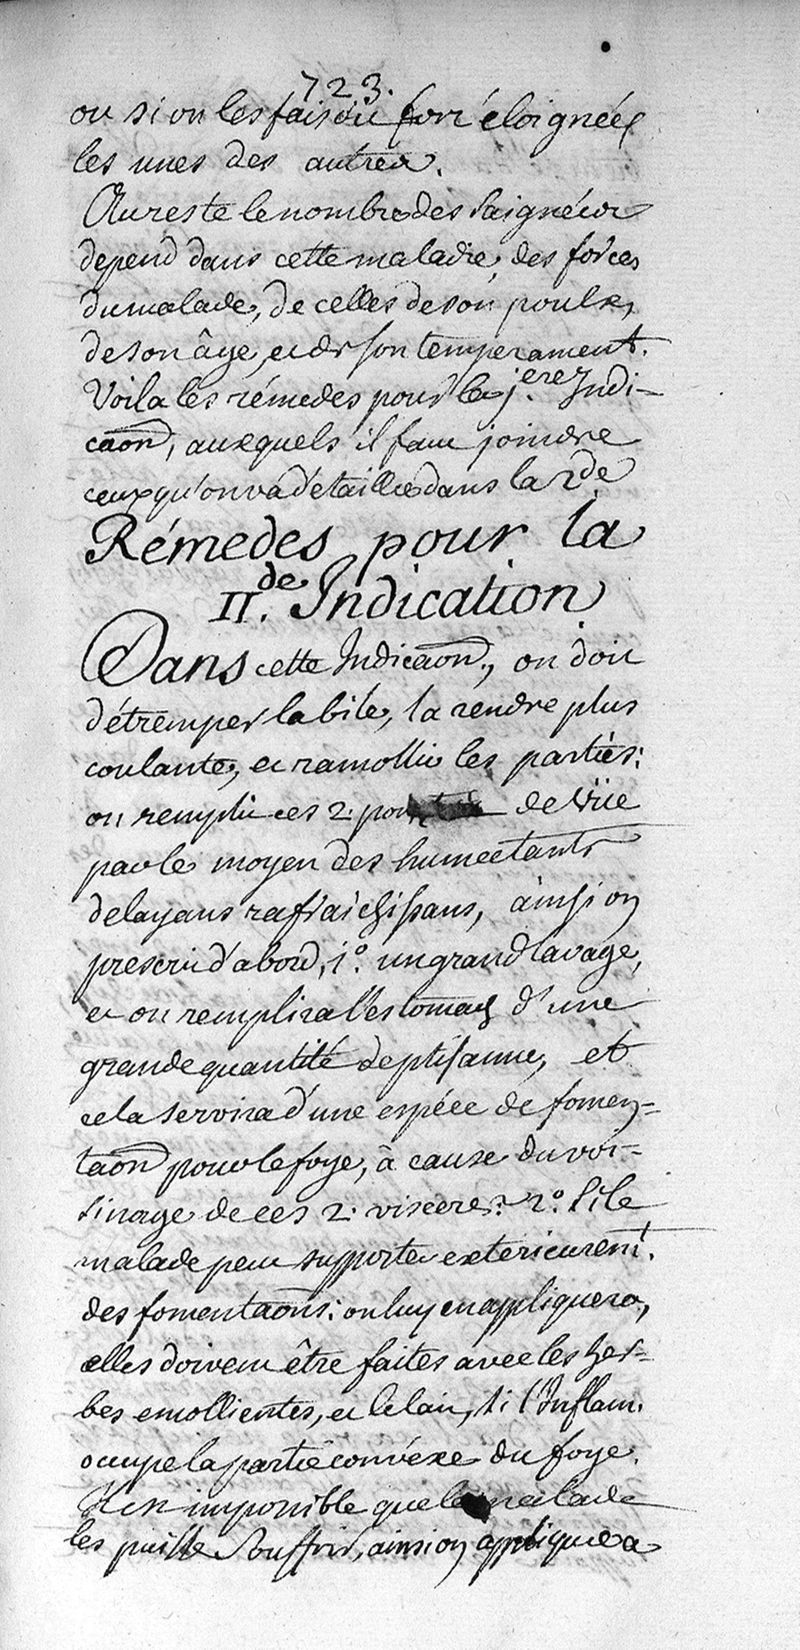 723.
ou si on les faisoit fort éloignées
les unes des autres.
Au reste le nombre des saignées
depend dans cette maladie, des forces
du malade, de celles de son pouls,
de son âge, et de son temperament.
Voila les rémedes pour la 1.ere Indi-
caon, auxquels il faut joindre
ceux qu'on va détailler dans la 2de
Rémedes pour la
II.de Indication
Dans cette Indicaon, on doit
détremper la bile, la rendre plus
coulante, et ramollir les parties:
on remplit ces 2. de vüe
par le moyen des humectants
delayans rafraichissans, ainsi on
prescrit d'abord, 1.° un grand lavage,
et on remplira l'estomach d'une
grande quantité de ptisanne, et
cela servira d'une espéce de fomen=
taon pour le foye, à cause du voi-
sinage de ces 2. visceres: 2.° si le
malade peut supporter exterieurem.t
des fomentaons: on luy en appliquera,
elles doivent être faites avec les her=
bes emollientes, et le lait, si l'Inflam.
occupe la partie convéxe du foye.
Il est impossible que le malade
les puisse souffrir, ainsi on appliquera